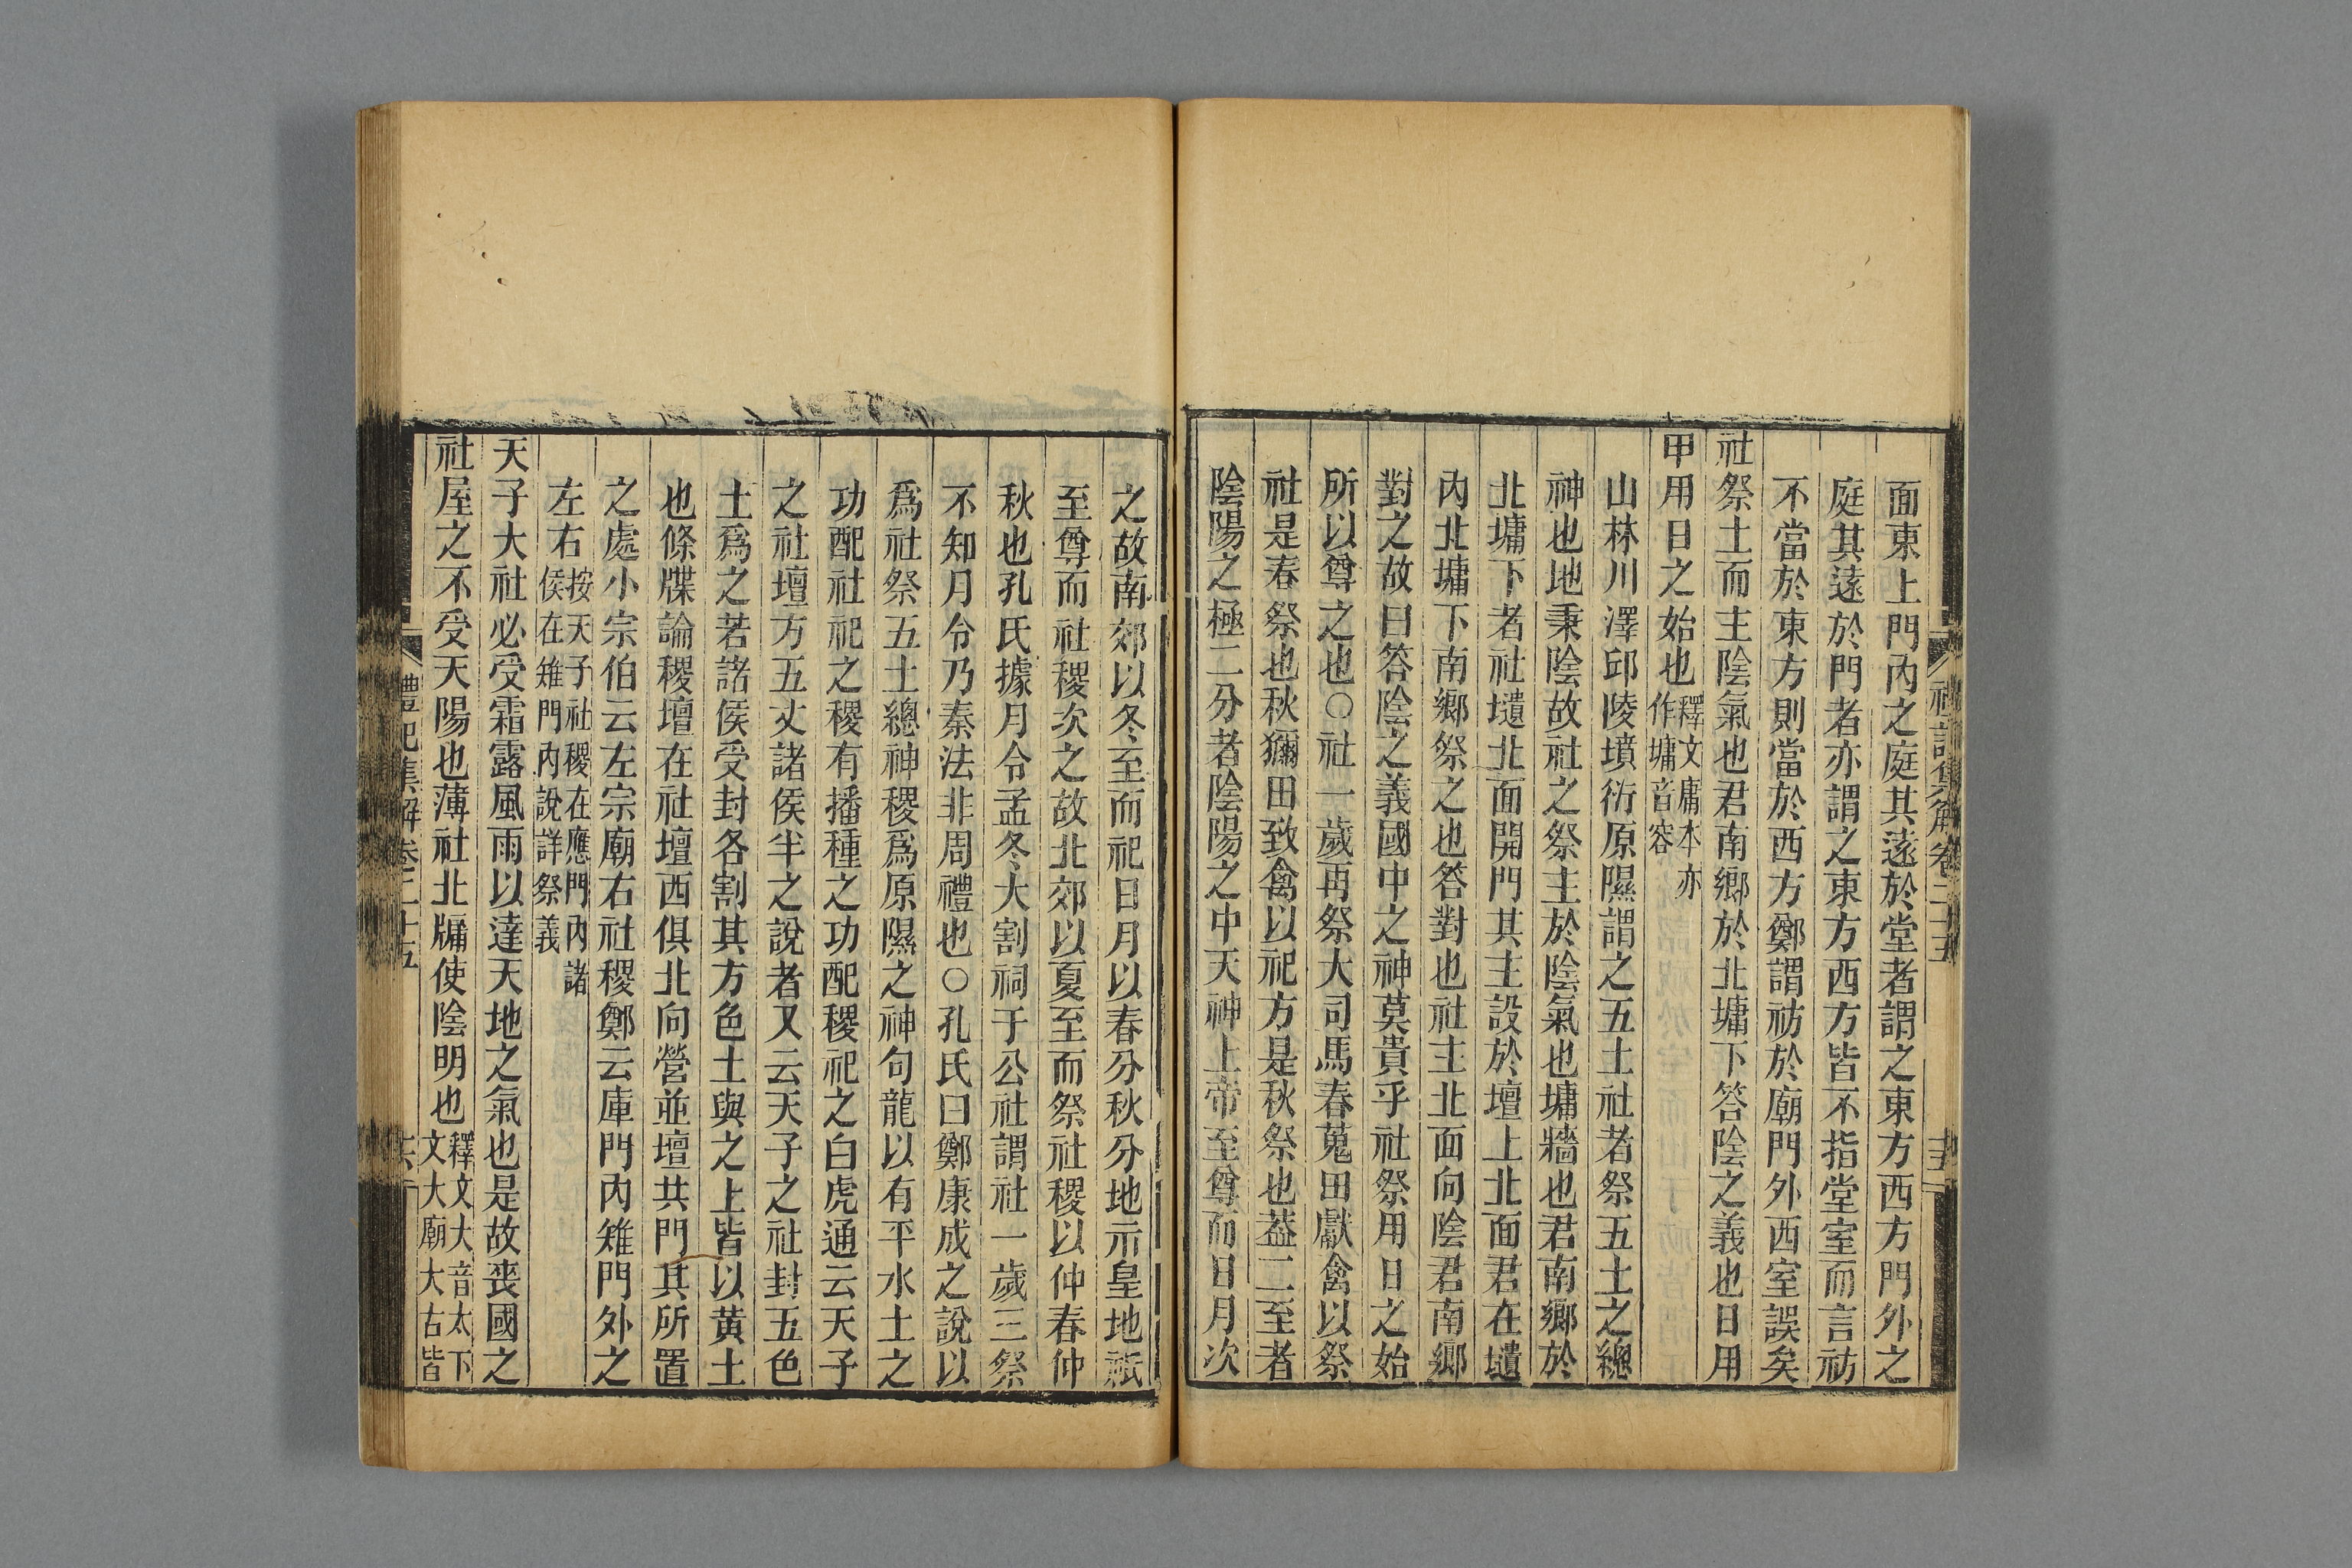 面東上門內之庭其遠於堂者謂之東方西方門外之
庭其遠於門者亦謂之東方西方皆不指堂室而言祊
不當於東方則當於西方鄭謂祊於廟門外西室誤矣
社祭土而主陰氣也君南鄉於北墉下答陰之義也日用
甲用日之始也釋文庸本亦作墉音容
山林川澤邱陵墳衍原隰謂之五土社者祭五土之總
神也地秉陰故社之祭主於陰氣也墉牆也君南鄉於
北墉下者社壝北面開門其主設於壇上北面君在壝
內北墉下南鄉祭之也答對也社主北面向陰君南鄉
對之故曰答陰之義國中之神莫貴乎社祭用日之始
所以尊之也○社一歲再祭大司馬春蒐田獻禽以祭
社是春祭也秋獮田致禽以祀方是秋祭也葢二至者
陰陽之極二分者陰陽之中天神上帝至尊而日月次
之故南郊以冬至而祀日月以春分秋分地示皇地祇
至尊而社稷次之故北郊以夏至而祭社稷以仲春仲
秋也孔氏據月令孟冬大割祠于公社謂社一歲三祭
不知月令乃秦法非周禮也○孔氏曰鄭康成之說以
爲社祭五土總神稷爲原隰之神句龍以有平水土之
功配社祀之稷有播種之功配稷祀之白虎通云天子
之社壇方五丈諸侯半之說者又云天子之社封五色
土爲之若諸侯受封各割其方色土與之上皆以黄土
也條牒論稷壇在社壇西俱北向營並壇共門其所置
之處小宗伯云左宗廟右社稷鄭云庫門內雉門外之
左右按天子社稷在應門內諸侯在雉門內說詳祭義
天子大社必受霜露風雨以達天地之氣也是故喪國之
社屋之不受天陽也薄社北牖使陰明也釋文大音太下文大廟大古皆
禮記集解卷二十五